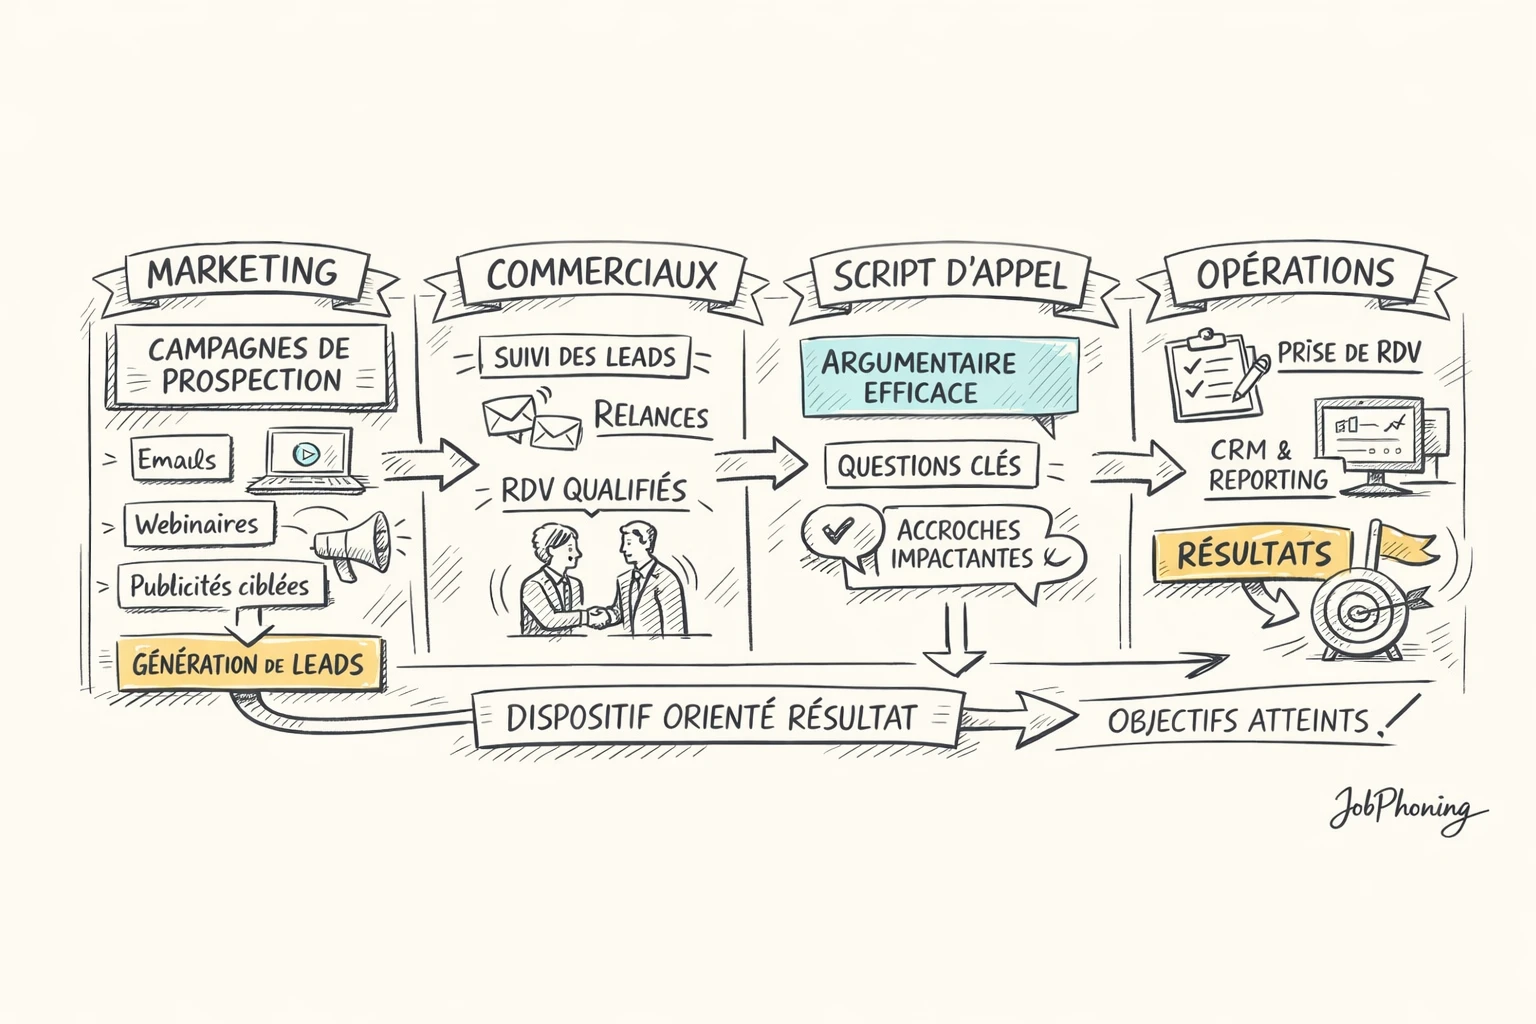 MARKETING
CAMPAGNES DE
PROSPECTION
Emails
Webinaires
Publicités ciblées
GÉNÉRATION DE LEADS
COMMERCIAUX
SUIVI DES LEADS
RELANCES
RDV QUALIFIÉS
SCRIPT D'APPEL
ARGUMENTAIRE
EFFICACE
QUESTIONS CLÉS
ACCROCHES
IMPACTANTES
OPÉRATIONS
PRISE DE RDV
CRM &
REPORTING
RÉSULTATS
DISPOSITIF ORIENTÉ RÉSULTAT
OBJECTIFS ATTEINTS !
JobPhoning